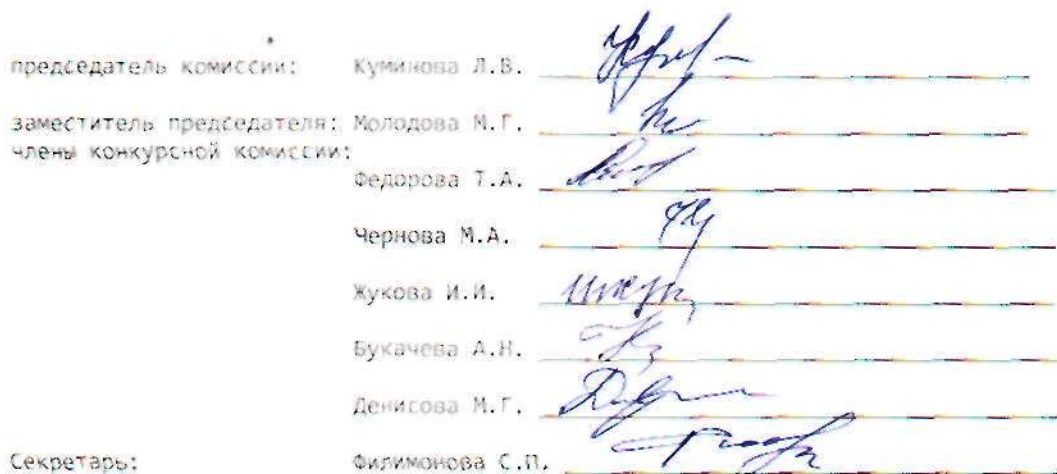 председатель комиссии: Куминова Л.В.
заместитель председателя: Молодова М.Г.
члены конкурсной комиссии:
Федорова Т.А.
Чернова М.А.
Жукова И.И.
Букачева А.Н.
Денисова М.Г.
Секретарь: Филимонова С.П.